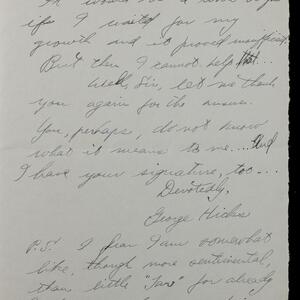 It would be a
if I waited for my
growth and it proved insufficient.
But then I cannot help that...
Well, Sir, let me thank
you again for the answer.
You, perhaps, do not know
what it means to me... And
I have your signature, too....
Devotedly,
George Hicks
P.S. I fear I am somewhat
like, though more sentimental,
than little "Tare" for already